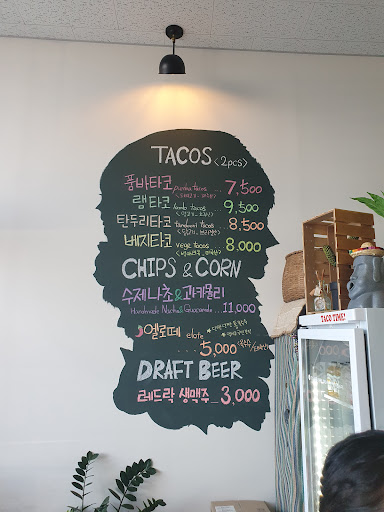 TACOS <2pcs>
풍바타코 pumba tacos ... 7,500
램타코 lamb tacos ... 9,500
탄두리타코 tandoori tacos ... 8,500
베지타코 vege tacos ... 8,000
CHIPS & CORN
수제나초&과카몰리
Handmade Nacho & Guacamole ... 11,000
엘로떼 elote
... 5,000
DRAFT BEER
레드락 생맥주 _ 3,000
TACO TIME!